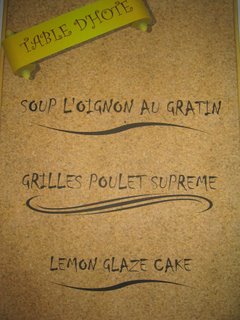 TABLE D'HOTE
SOUP L'OIGNON AU GRATIN
GRILLES POULET SUPREME
LEMON GLAZE CAKE